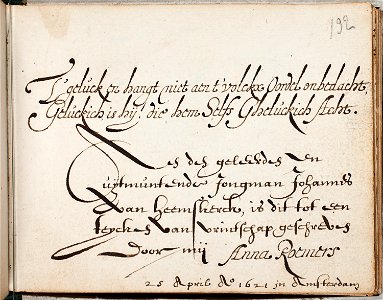 192
T'geluck en hangt niet aen t'volckx Oordel onbedacht,
Geluckich is hy, die hem Selfs Gheluckich Acht.
des geleerdes en
uijtmuntende Jongman Johannes
van Heemskerck, is dit tot een
teycken van vrintschap geschreven
Door mij Anna Roemers
25 April Aº 1621 in Amsterdam